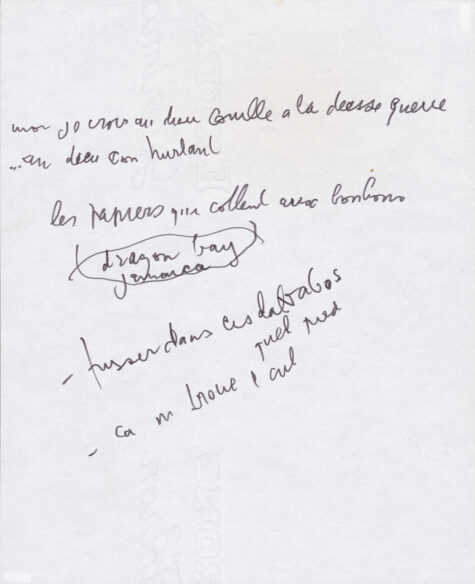 moi je crois au dieu couille a la deesse guerre
...au dieu con hurlant
les papiers qui collent aux bonbons
dragon bay
jamaica
- pisser dans ces
quel pied
- ca m troue l cul